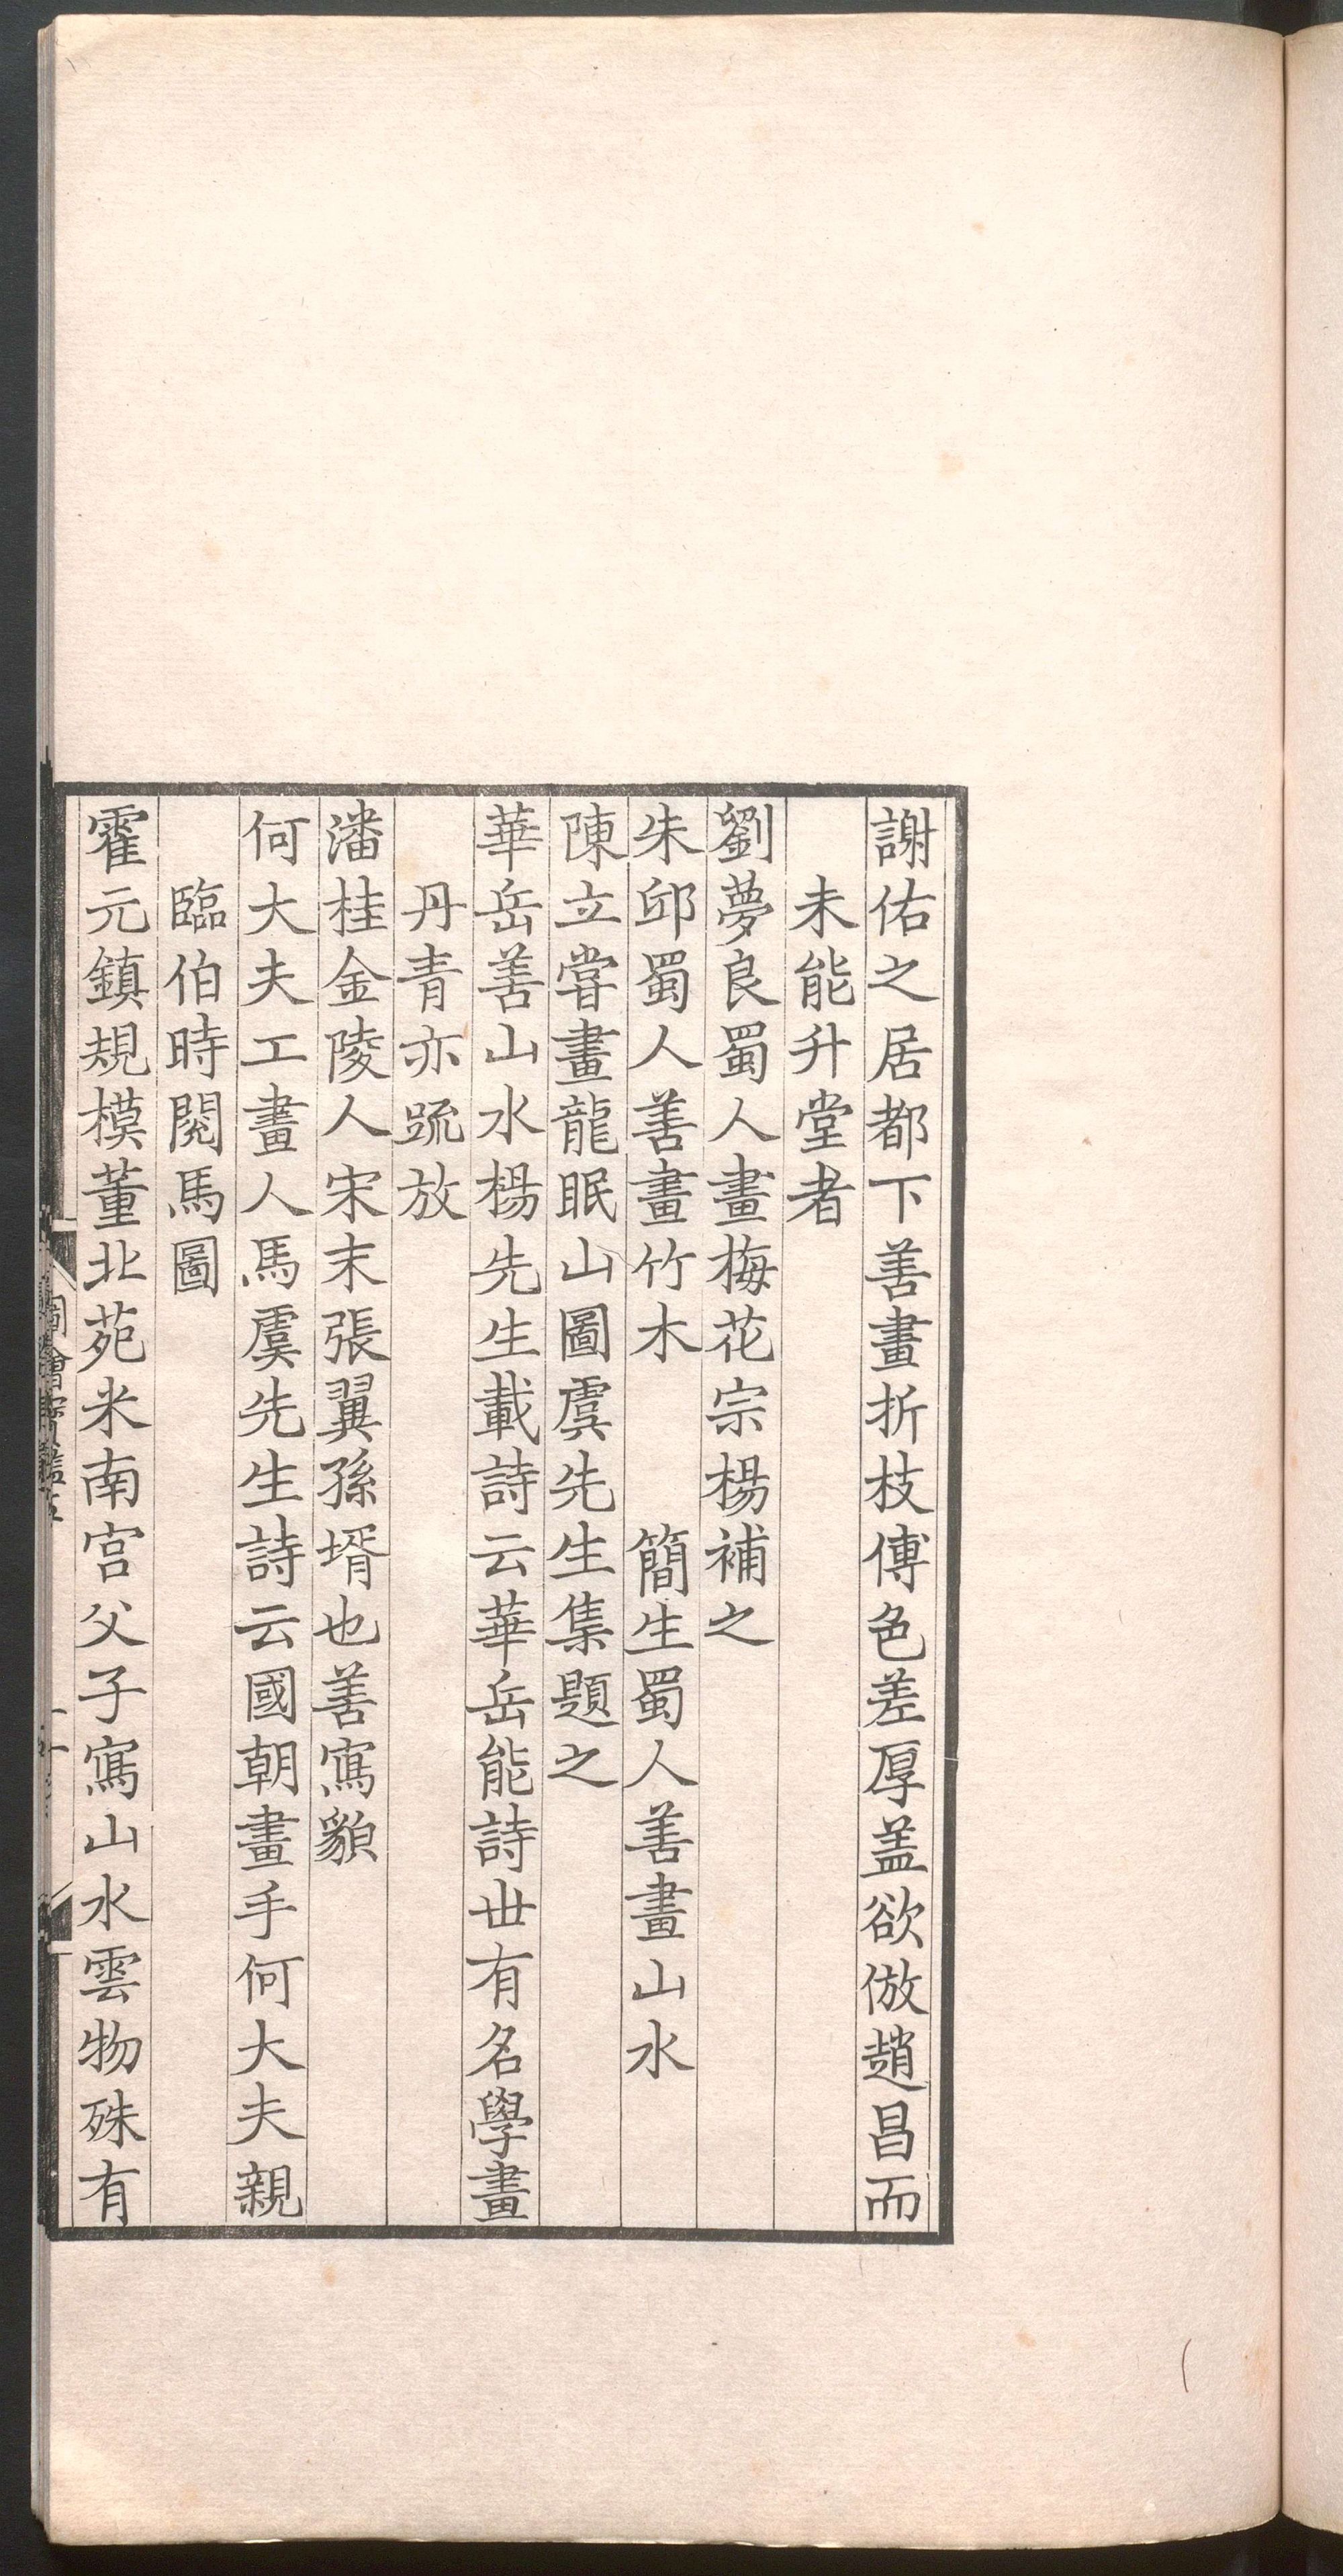 謝佑之居都下善畫折枝傅色差厚盖欲倣趙昌而
未能升堂者
劉夢良蜀人畫梅花宗楊補之
朱邱蜀人善畫竹木　簡生蜀人善畫山水
陳立嘗畫龍眠山圖虞先生集題之
華岳善山水楊先生載詩云華岳能詩世有名學畫
丹青亦䟽放
潘桂金陵人宋末張翼孫壻也善寫貌
何大夫工畫人馬虞先生詩云國朝畫手何大夫親
臨伯時閱馬圖
霍元鎮規模董北苑米南宫父子寫山水雲物殊有
圖繪寶鑑五